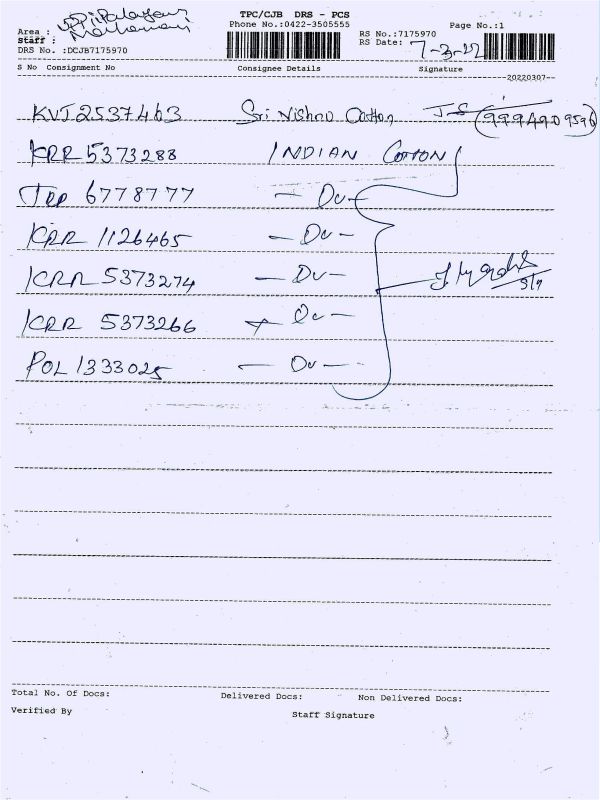 TPC/CJB DRS - PCS
Phone No.:0422-3505555
Page No.:1
Area :
Staff :
DRS No. :DCJB7175970
RS No.:7175970
RS Date: 7-3-22
S No Consignment No Consignee Details Signature
20220307--
KVJ 2537463 Sri Vishno Cotton
KRR 5373288 INDIAN COTTON
6778777 - Do -
KRR 1126465 - Do -
KRR 5373274 - Do -
KRR 5373266 - Do -
POL 1333025 - Do -
Total No. Of Docs: Delivered Docs: Non Delivered Docs:
Verified By Staff Signature